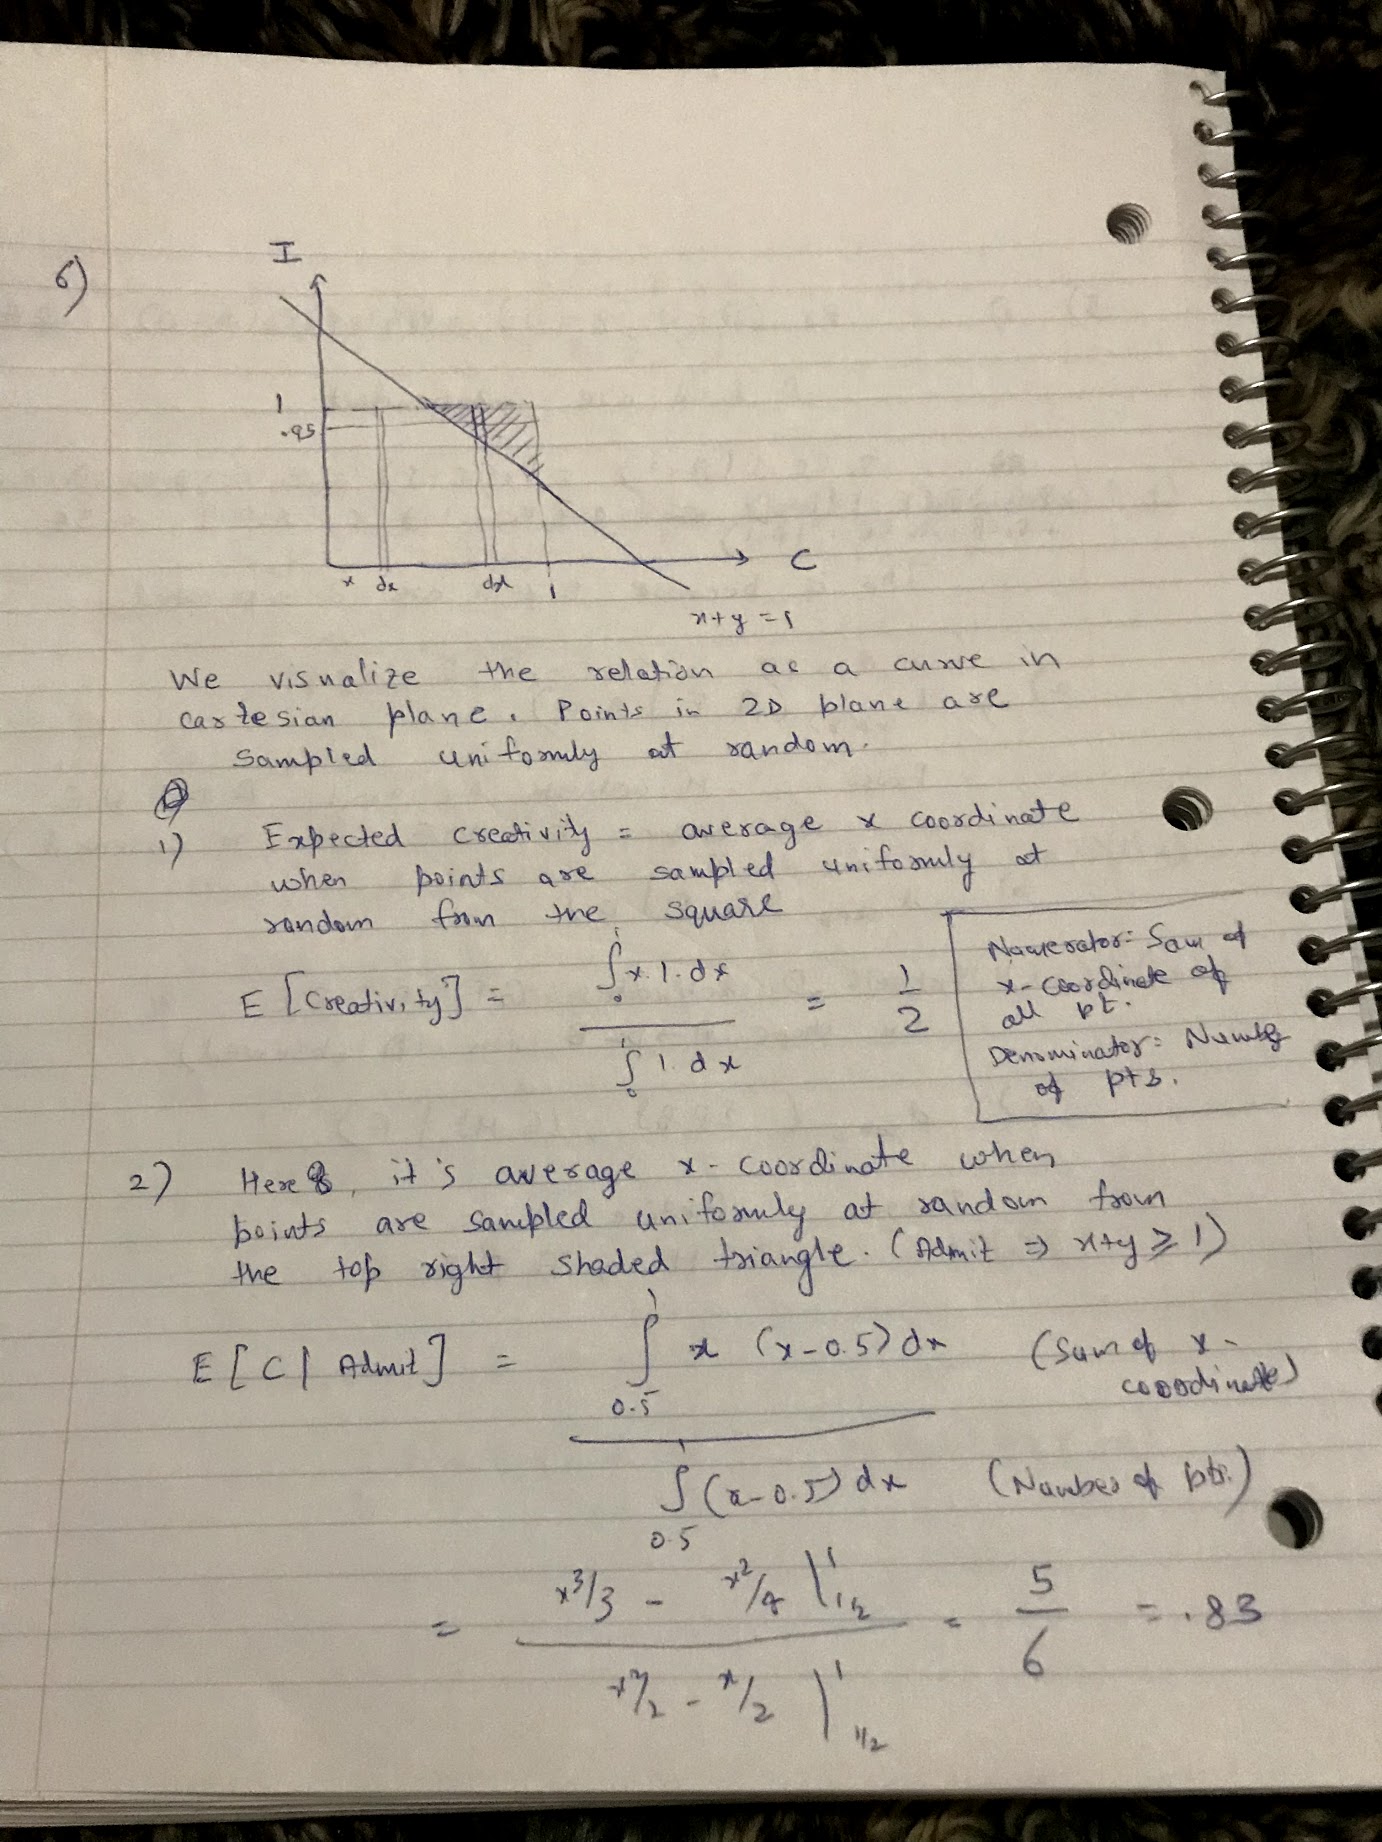 6)
I
1
.95
C
x dx dx 1
x+y = 1
We visualize the relation as a curve in
cartesian plane. Points in 2D plane are
sampled uniformly at random.
1) Expected creativity = average x coordinate
when points are sampled uniformly at
random from the square
E [Creativity] = ∫₀¹ x.1.dx / ∫₀¹ 1.dx = 1/2
Numerator: Sum of
x-coordinate of
all pt.
Denominator: Number
of pts.
2) Here, it's average x-coordinate when
points are sampled uniformly at random from
the top right shaded triangle. (Admit ⇒ x+y ≥ 1)
E [C | Admit] = ∫₀.₅¹ x (x-0.5) dx (Sum of x-
coordinate)
∫₀.₅¹ (x-0.5) dx (Number of pts.)
= x³/3 - x²/4 |¹₁/₂ / x²/2 - x/2 |¹₁/₂ = 5/6 = .83